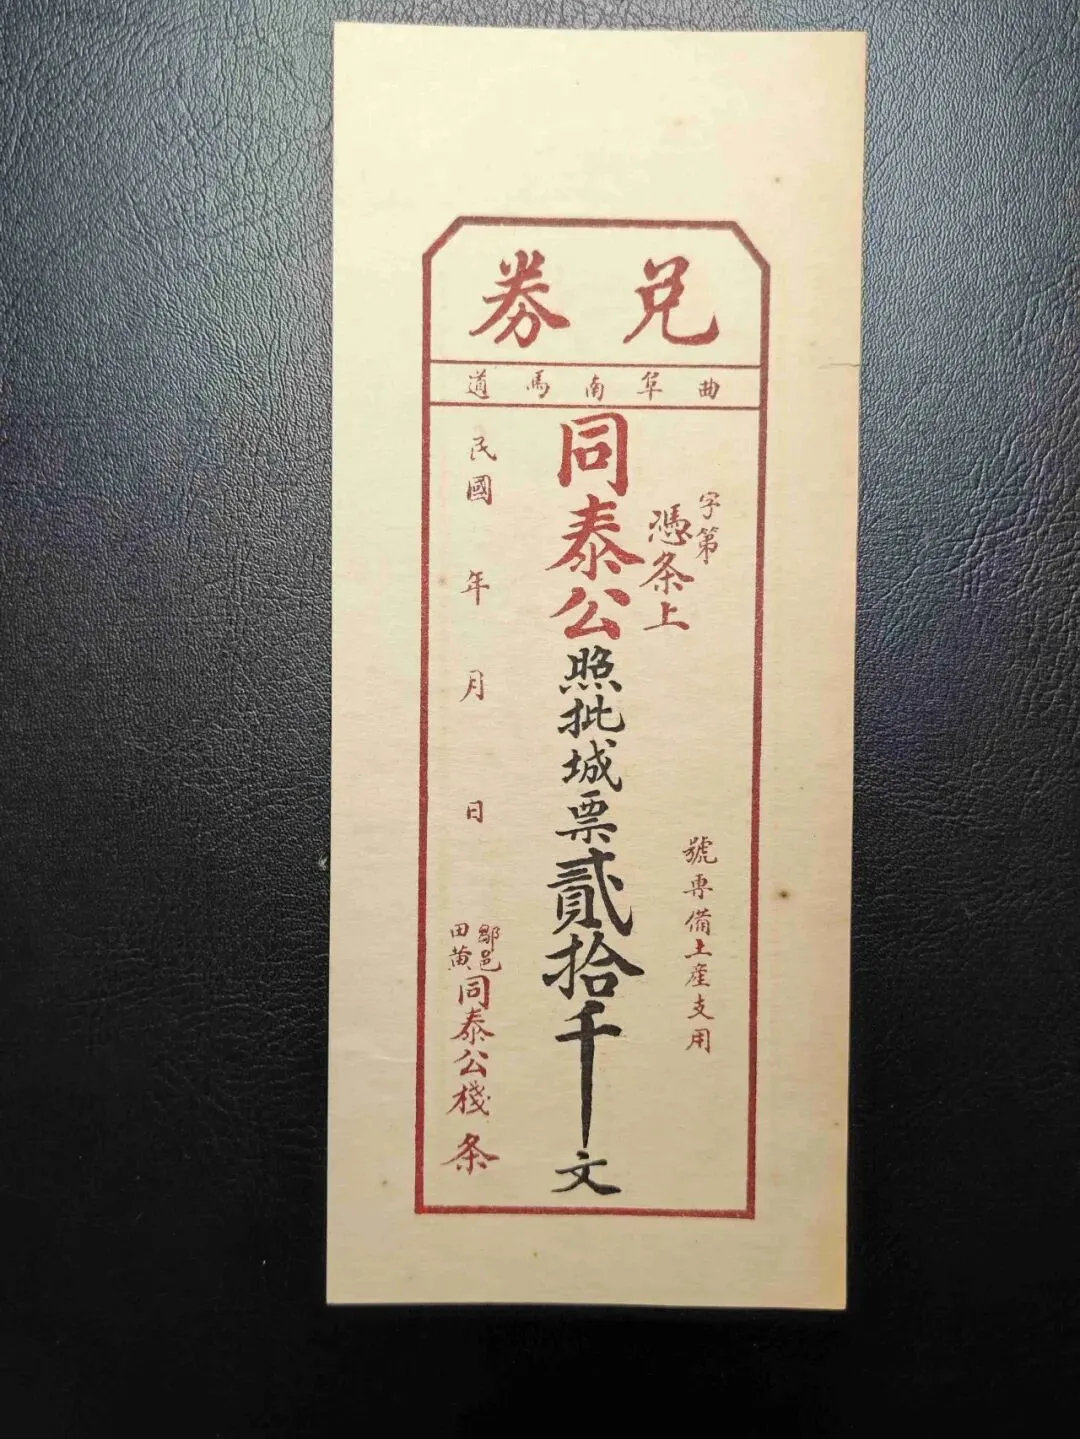 兑券
曲阜南馬道
字第
號專備土產支用
憑条上
同泰公照批城票貳拾千文
民國 年 月 日
鄒邑
田黄
同泰公棧 条